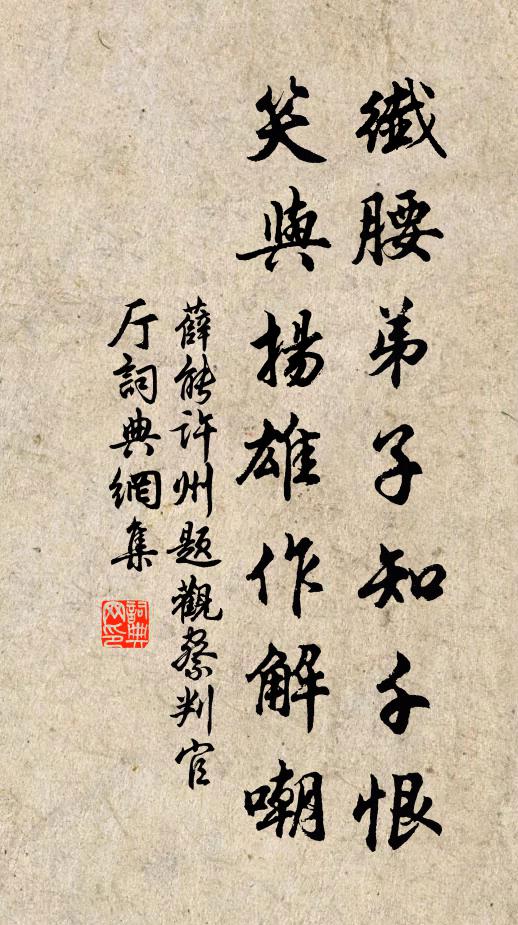 纖腰弟子知千恨
笑與揚雄作解嘲
薛能许州题觀察判官
厅詞典網集
詞典網印